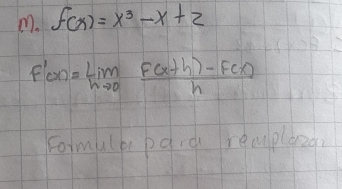 m. f(x) = x³ - x + 2
F'(x) = Lim h→0 F(x+h) - F(x) / h
Formula para remplazar